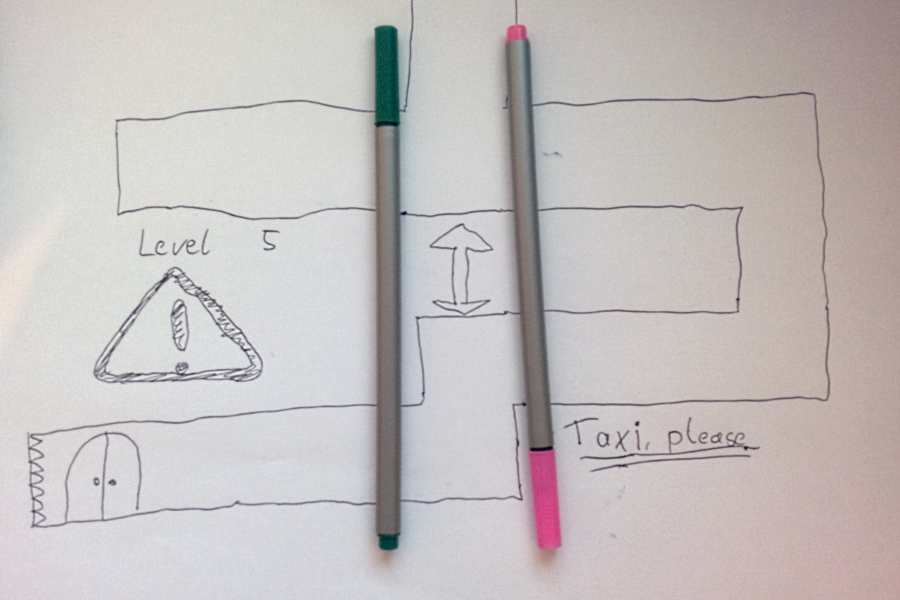 Level 5
!
Taxi, please